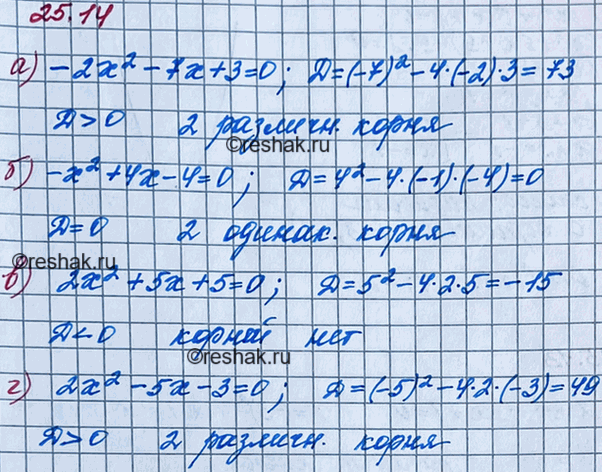 25.14
а) -2x² - 7x + 3 = 0; D = (-7)² - 4·(-2)·3 = 73
D > 0 2 различн. корня
©reshak.ru
б) -x² + 4x - 4 = 0; D = 4² - 4·(-1)·(-4) = 0
D = 0 2 одинак. корня
©reshak.ru
в) 2x² + 5x + 5 = 0; D = 5² - 4·2·5 = -15
D < 0 корней нет
©reshak.ru
г) 2x² - 5x - 3 = 0; D = (-5)² - 4·2·(-3) = 49
D > 0 2 различн. корня
©reshak.ru